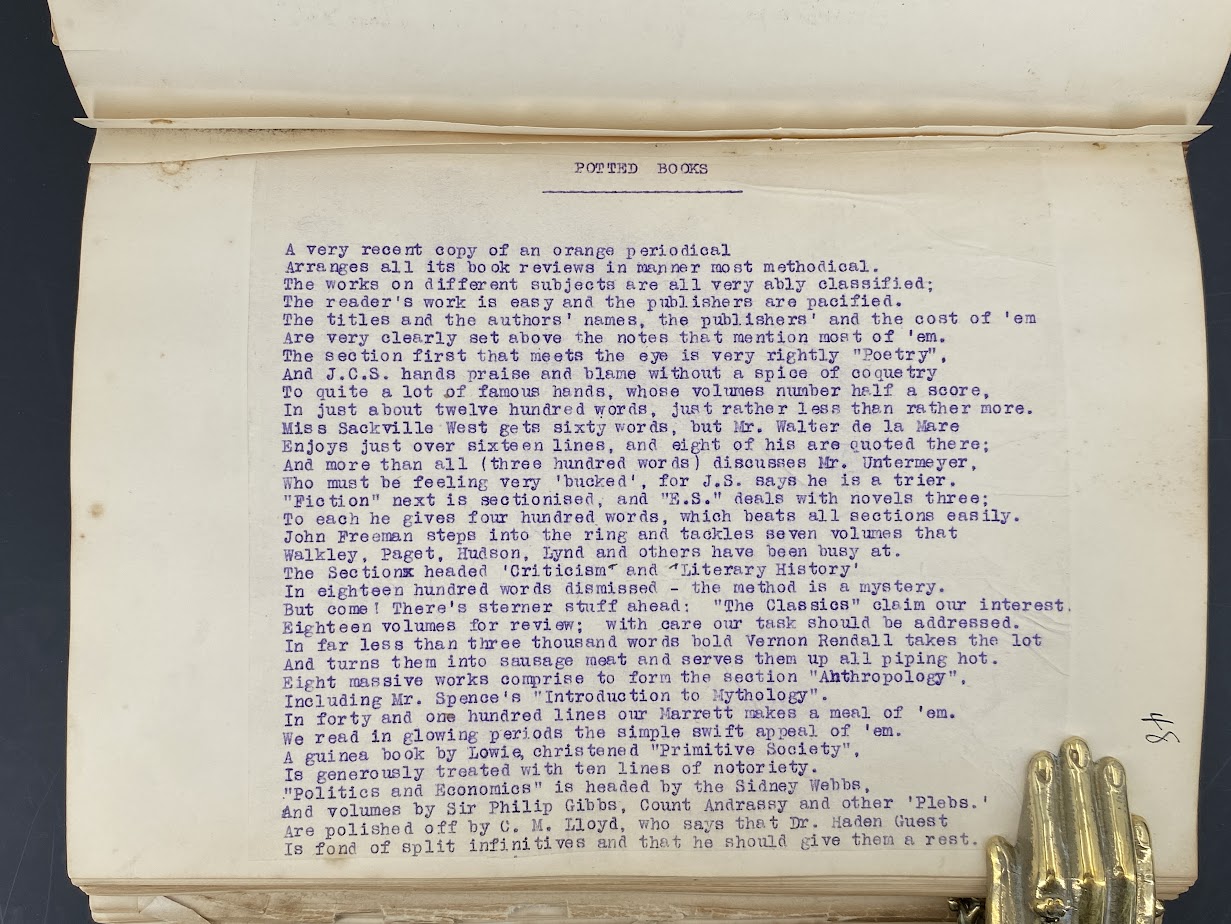 POTTED BOOKS
A very recent copy of an orange periodical
Arranges all its book reviews in manner most methodical.
The works on different subjects are all very ably classified;
The reader's work is easy and the publishers are pacified.
The titles and the authors' names, the publishers' and the cost of 'em
Are very clearly set above the notes that mention most of 'em.
The section first that meets the eye is very rightly "Poetry",
And J.C.S. hands praise and blame without a spice of coquetry
To quite a lot of famous hands, whose volumes number half a score,
In just about twelve hundred words, just rather less than rather more.
Miss Sackville West gets sixty words, but Mr. Walter de la Mare
Enjoys just over sixteen lines, and eight of his are quoted there;
And more than all (three hundred words) discusses Mr. Untermeyer,
Who must be feeling very 'bucked', for J.S. says he is a trier.
"Fiction" next is sectionised, and "E.S." deals with novels three;
To each he gives four hundred words, which beats all sections easily.
John Freeman steps into the ring and tackles seven volumes that
Walkley, Paget, Hudson, Lynd and others have been busy at.
The Section headed 'Criticism' and 'Literary History'
In eighteen hundred words dismissed - the method is a mystery.
But come! There's sterner stuff ahead: "The Classics" claim our interest.
Eighteen volumes for review; with care our task should be addressed.
In far less than three thousand words bold Vernon Rendall takes the lot
And turns them into sausage meat and serves them up all piping hot.
Eight massive works comprise to form the section "Anthropology",
Including Mr. Spence's "Introduction to Mythology".
In forty and one hundred lines our Marrett makes a meal of 'em.
We read in glowing periods the simple swift appeal of 'em.
A guinea book by Lowie, christened "Primitive Society",
Is generously treated with ten lines of notoriety.
"Politics and Economics" is headed by the Sidney Webbs,
And volumes by Sir Philip Gibbs, Count Andrassy and other 'Plebs.'
Are polished off by C. M. Lloyd, who says that Dr. Haden Guest
Is fond of split infinitives and that he should give them a rest.
48